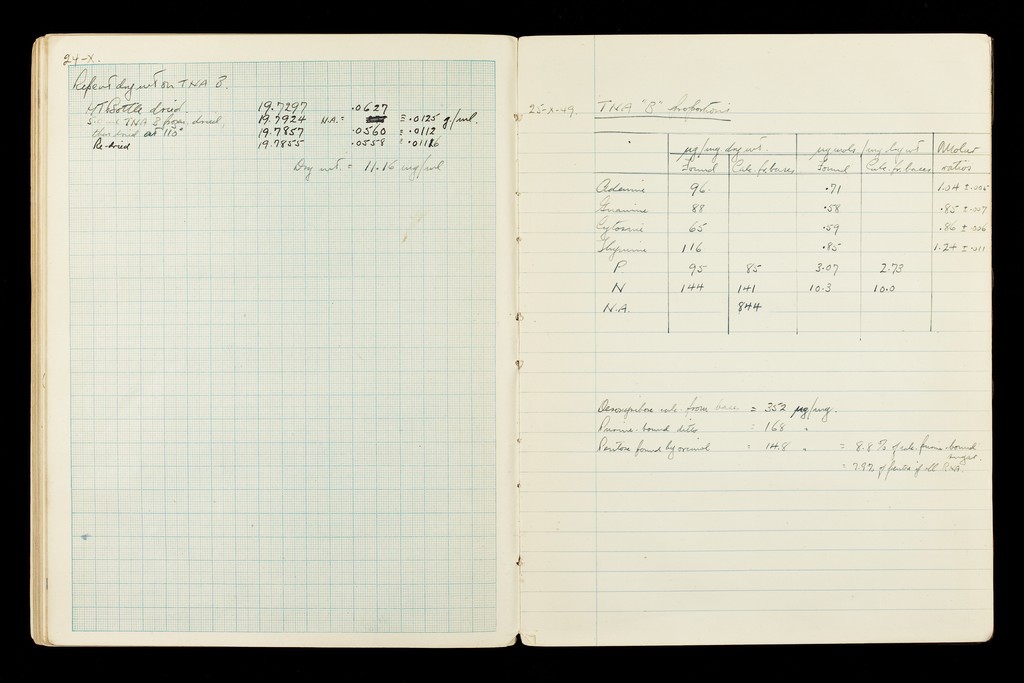 24-X.
Repeat dry wt on TNA B.
WT Bottle dried. 19.7297 .0627
TNA B froz, dried, 19.7924 N.A. = ≡ .0125 g/ml.
then dried at 110° 19.7857 .0560 ≡ .0112
Re-dried 19.7855 .0558 ≡ .01116
Dry wt. = 11.16 mg/ml
25-X-49. TNA "B" proportions
µg/mg dry wt. µg mols./mg dry wt Molar
Found Calc. fr. bases Found Calc. fr. bases ratios
Adenine 96. .71 1.04 ± .005
Guanine 88 .58 .85 ± .007
Cytosine 65 .59 .86 ± .006
Thymine 116 .85 1.24 ± .011
P 95 85 3.07 2.73
N 144 141 10.3 10.0
N.A. 844
Deoxypentose calc. from base = 352 µg/mg.
Purine-bound ditto = 168 "
Pentose found by orcinol = 14.8 " = 8.8% of calc. purine-bound
sugar.
= 7.9% of if all RNA.